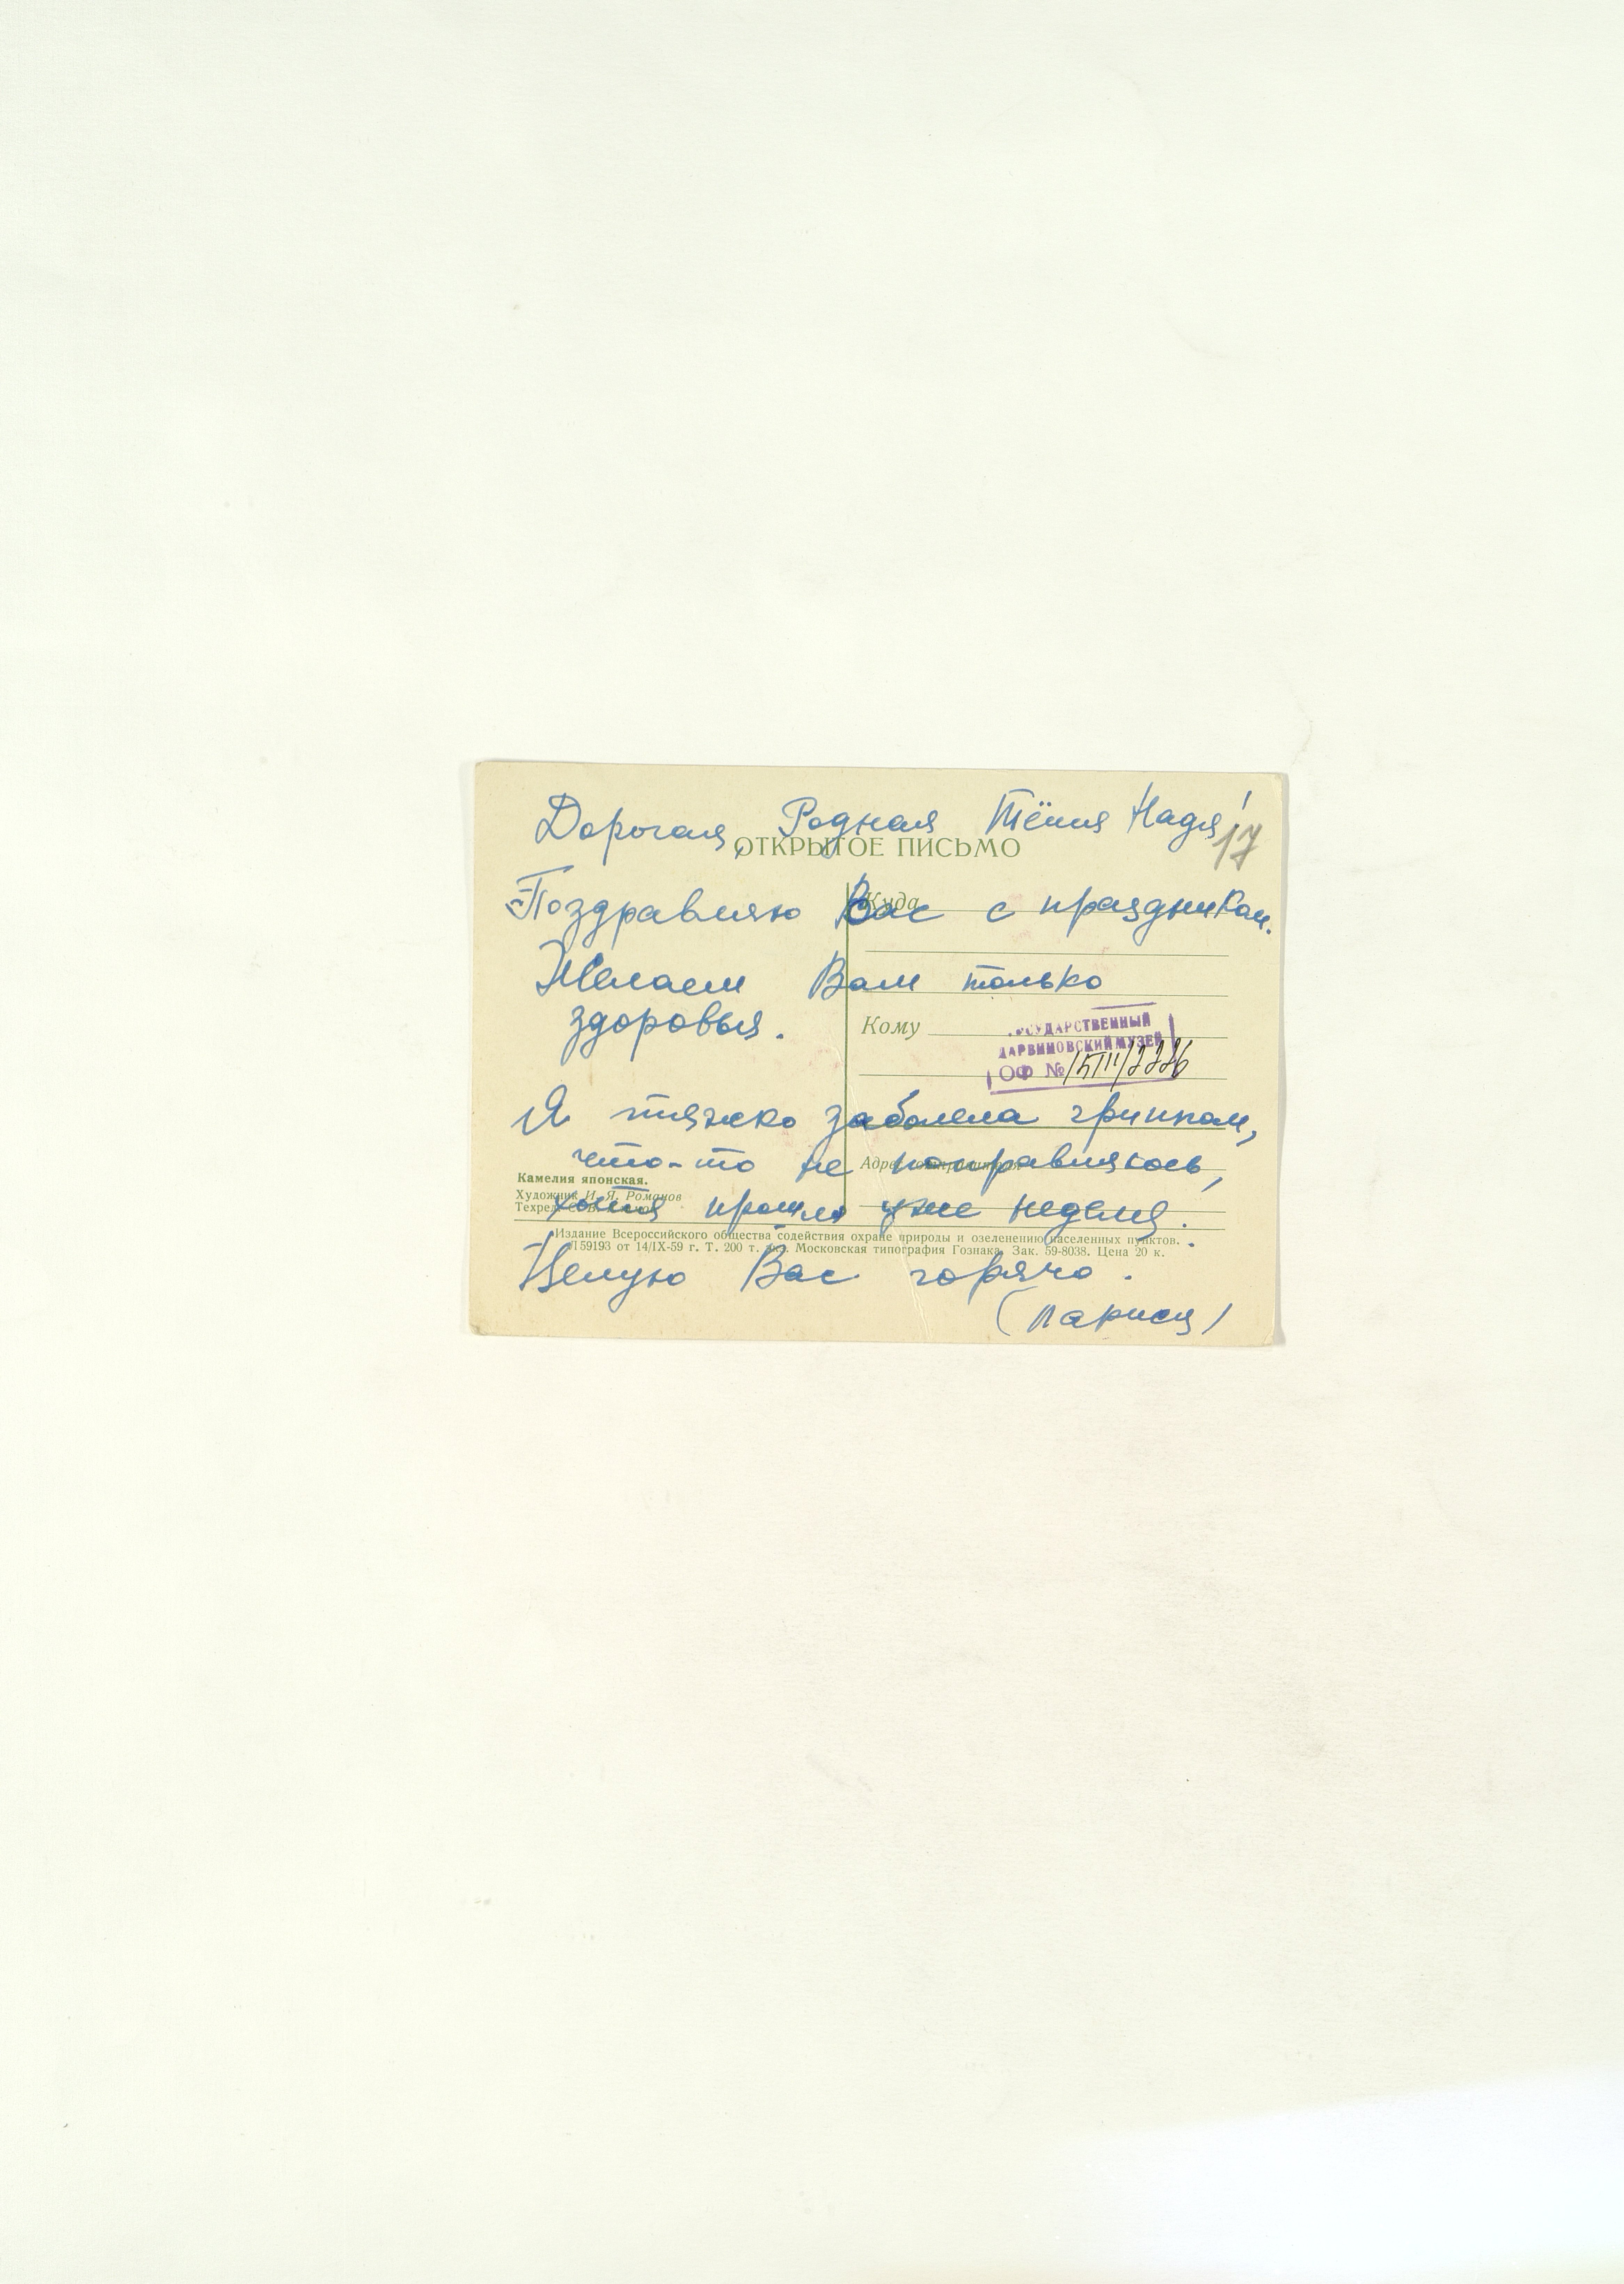 Дорогая, Родная Тётя Надя!
17
ОТКРЫТОЕ ПИСЬМО
Поздравляю Вас с праздником.
Куда
Желаем Вам только
здоровья.
Кому
ГОСУДАРСТВЕННЫЙ
ДАРВИНОВСКИЙ МУЗЕЙ
ОФ №
Я тяжко заболела гриппом,
что-то не поправляюсь,
Камелия японская.
Художник И. Я. Романов
Техред
хотя прошла уже неделя.
Издание Всероссийского общества содействия охране природы и озеленению населенных пунктов.
Л59193 от 14/IX-59 г. Т. 200 т. экз. Московская типография Гознака. Зак. 59-8038. Цена 20 к.
Целую Вас горячо.
(Лариса)